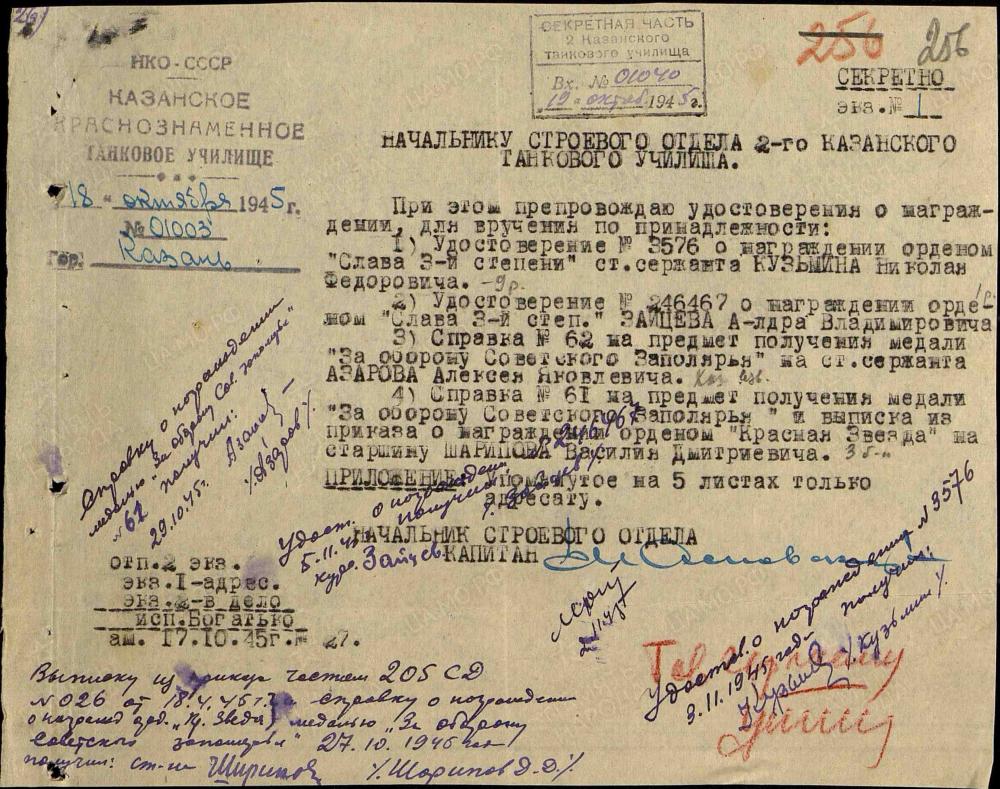 СЕКРЕТНАЯ ЧАСТЬ
2 Казанского
танкового училища
Вх. № 01040
19 " октяб 1945 г.
256 256
СЕКРЕТНО
экз.№ 1
НКО-СССР
КАЗАНСКОЕ
КРАСНОЗНАМЕННОЕ
ТАНКОВОЕ УЧИЛИЩЕ
18 " октября 1945 г.
№ 01003
Гор. Казань
НАЧАЛЬНИКУ СТРОЕВОГО ОТДЕЛА 2-го КАЗАНСКОГО
ТАНКОВОГО УЧИЛИЩА.
При этом препровождаю удостоверения о награж-
дении, для вручения по принадлежности:
1) Удостоверение № 3576 о награждении орденом
"Слава 3-й степени" ст.сержанта КУЗЬМИНА Николая
Федоровича. -9р.
2) Удостоверение № 246467 о награждении орде-
ном "Слава 3-й степ." ЗАЙЦЕВА А-лдра Владимировича
3) Справка № 62 на предмет получения медали
"За оборону Советского Заполярья" на ст.сержанта
АЗАРОВА Алексея Яковлевича.
4) Справка № 61 на предмет получения медали
"За оборону Советского Заполярья " и выписка из
приказа о награждении орденом "Красная Звезда" на
старшину ШАРИПОВА Василия Дмитриевича.
ПРИЛОЖЕНИЕ: Упомянутое на 5 листах только
адресату.
НАЧАЛЬНИК СТРОЕВОГО ОТДЕЛА
КАПИТАН
отп.2 экз.
экз.1-адрес.
экз.2-в дело
исп.Богатько
ам. 17.10.45г.№ 27.
Справку о награждении
медалью "За оборону Сов. Заполярья"
№ 62 получил:
29.10.45г. Азаров
/Азаров/
Удост. о награжден № 246467
5.11.45 получил
курс. Зайцев /Зайцев/
Удостов. о награждении № 3576
3.11.1945 год. получил:
/Кузьмин/
Выписку из приказа частям 205 СД
№ 026 от 18.4.45 г. и справку о награждении
о награжд орд. "Кр. Звезда" медалью "За оборону
Советского заполярья" 27.10.1945 года
получил: ст-на Шарипов /Шарипов В.Д./